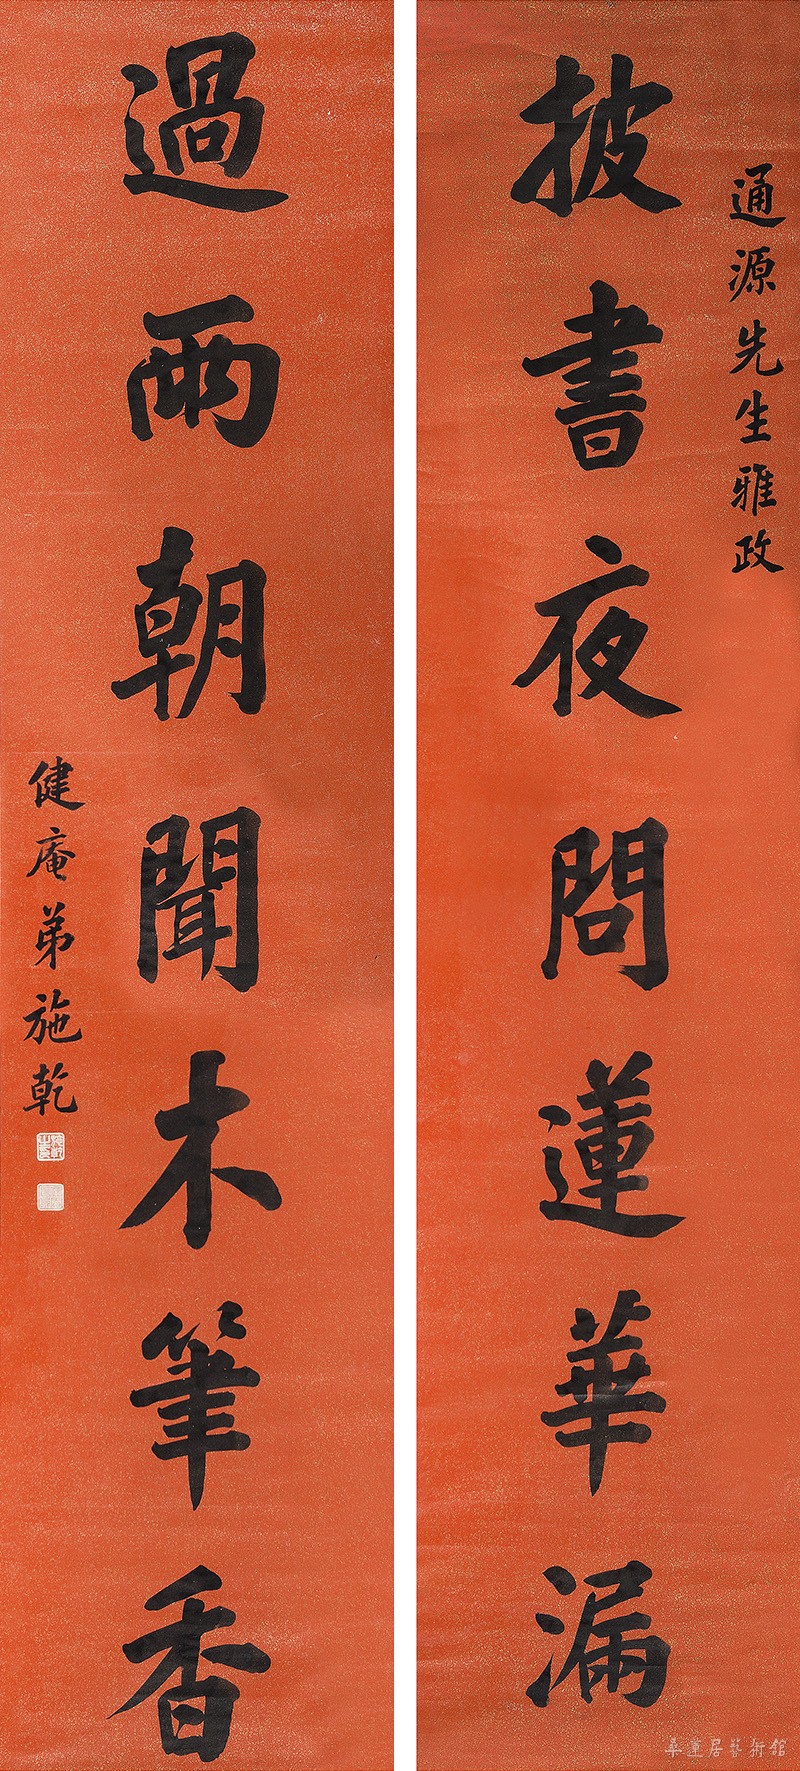 通源先生雅政
披書夜問蓮華漏
過雨朝聞木筆香
健庵弟施乾
華蓮居藝術館